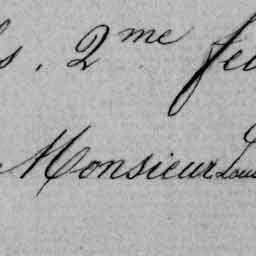 s. 2me feu
Monsieur Lou